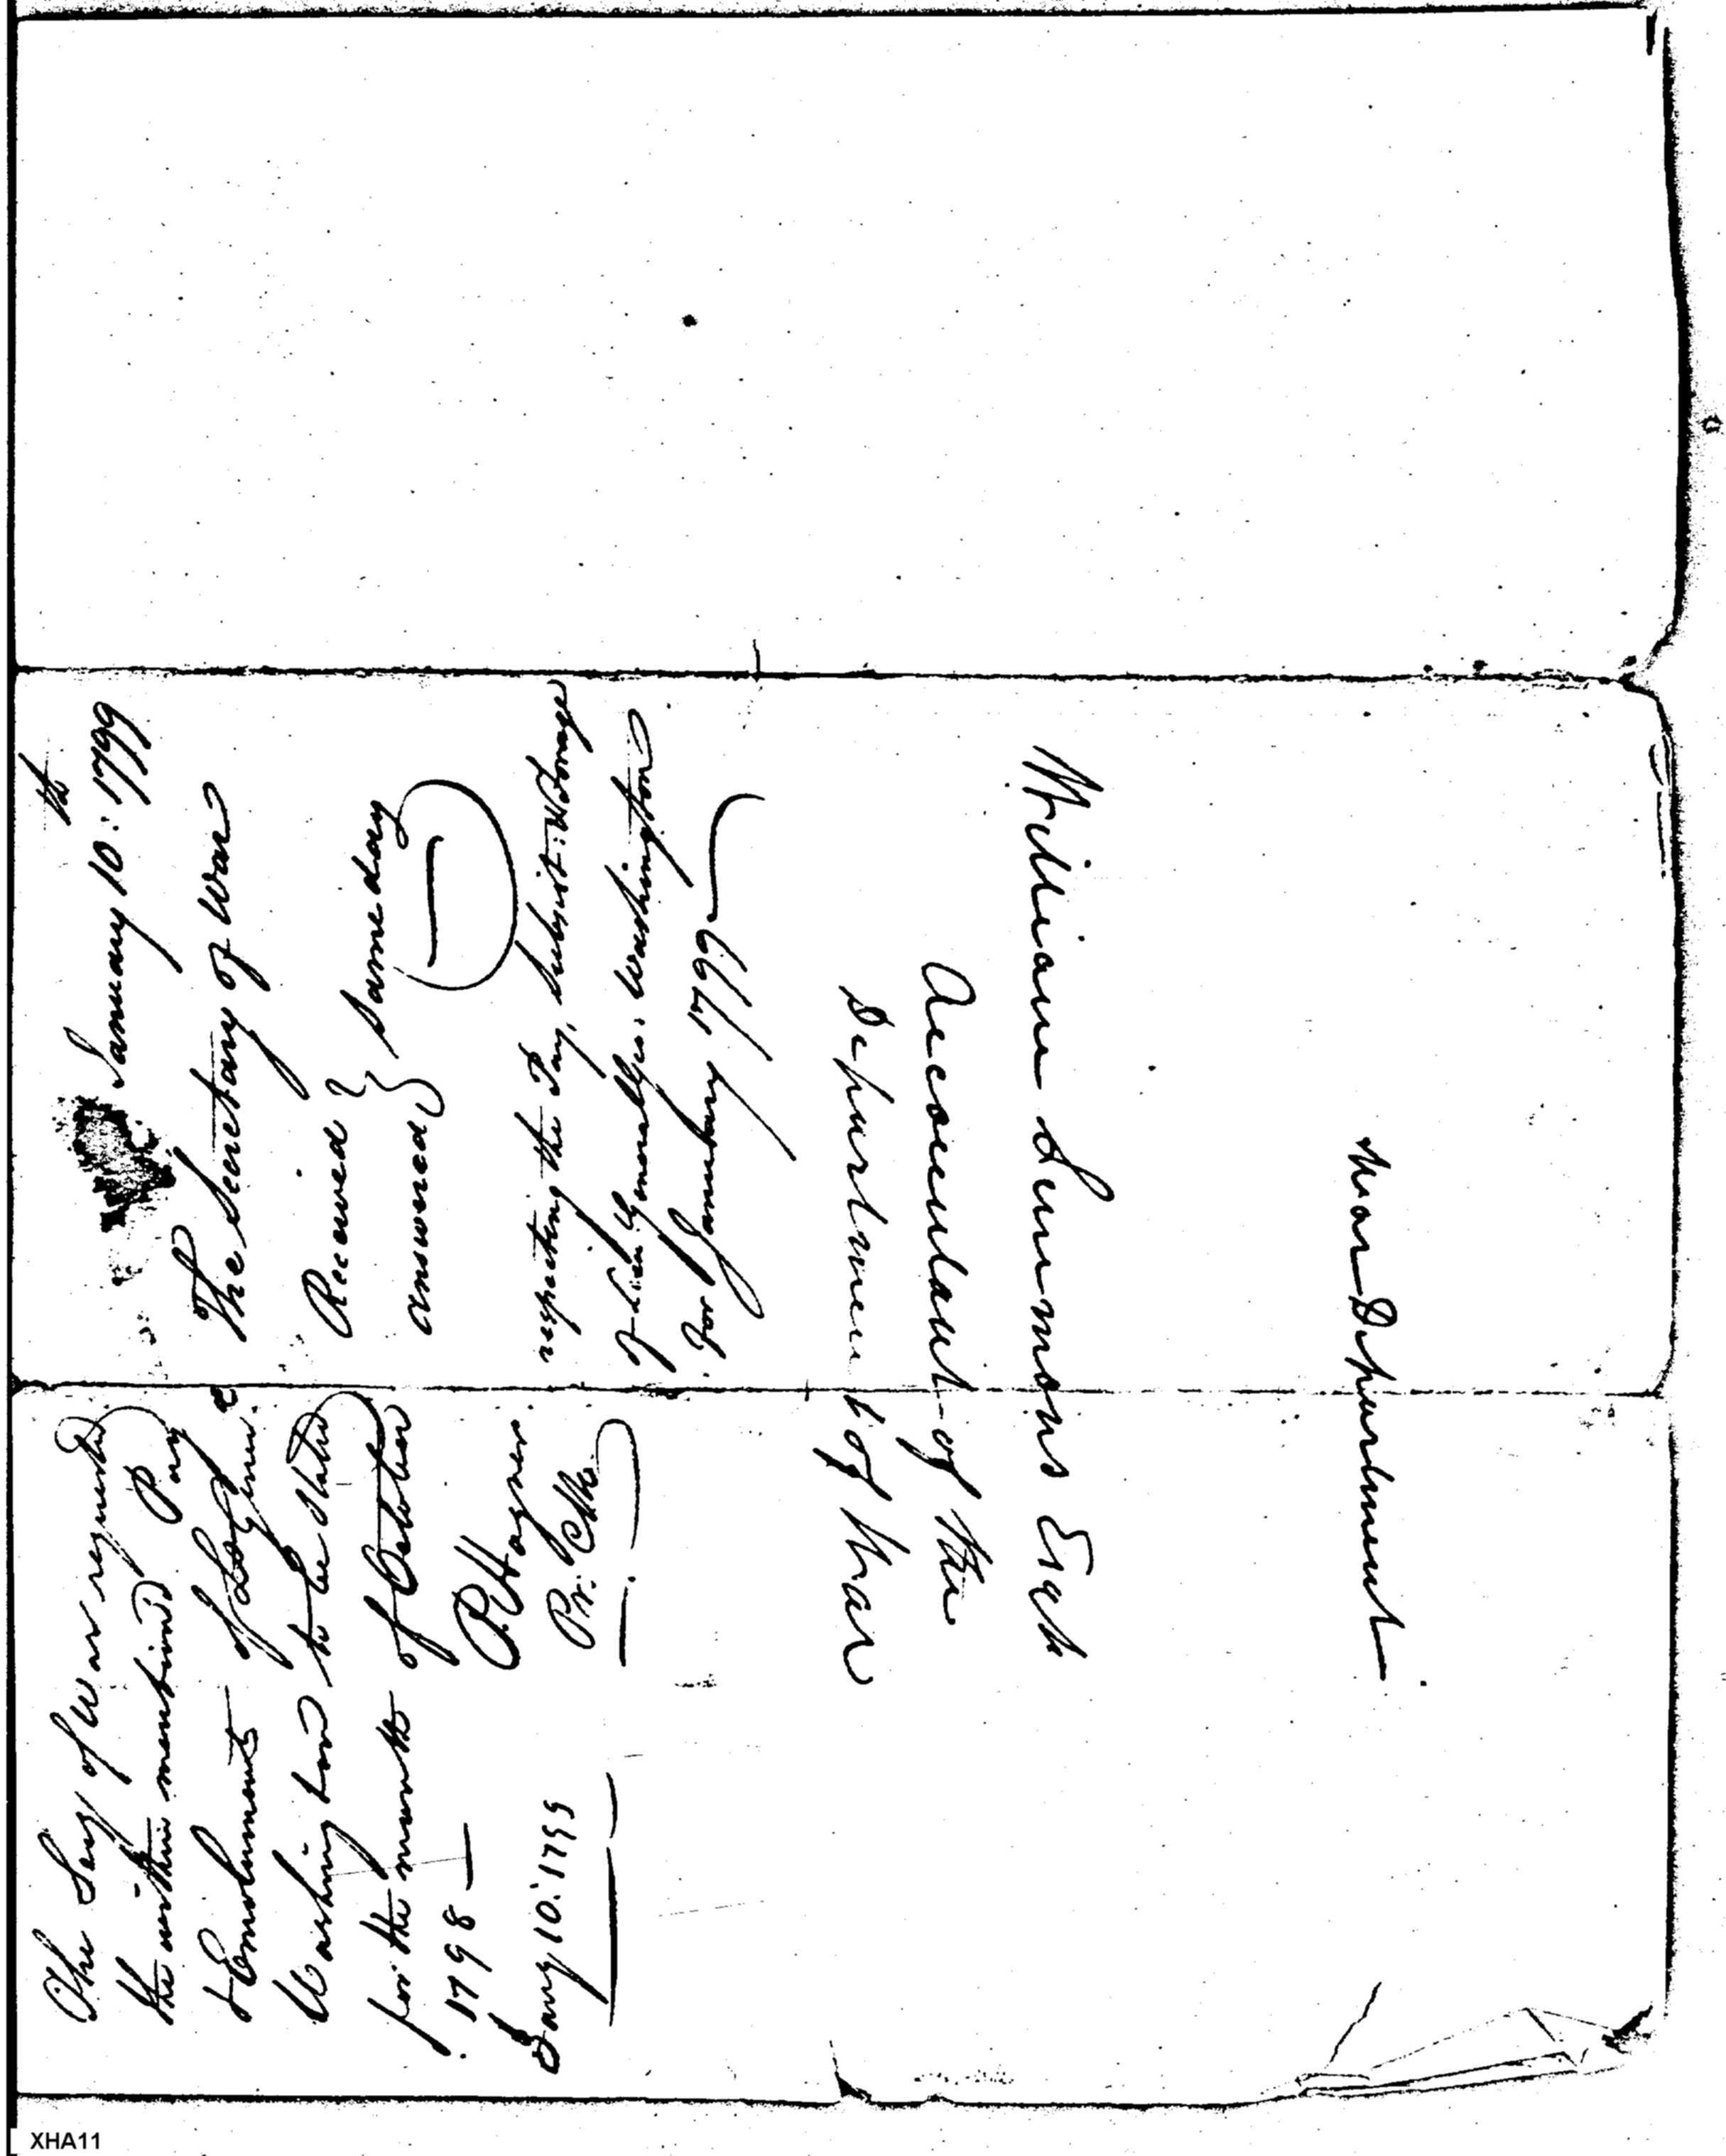 The Secy of War requested
the within mentioned Pay
& Emoluments of Lt Genl.
Washington to be stated
for the month of October
1798 —
P. Hagner
Pr. Clk
Jany 10: 1799
January 10:th 1799
The Secretary of War
Received }
answered } same day
respecting the Pay, Subsist: & Forage
of Lieu Generall Geo. Washington
for January 1799
William Simmons Esqr
Accountant of the
Department of War
War Department
XHA11